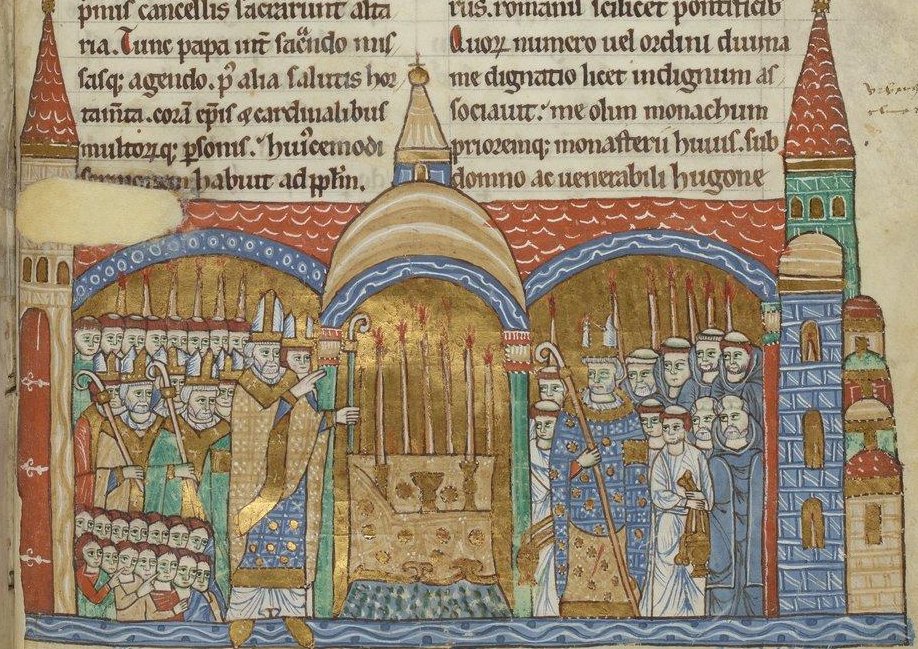 cancellis sacrarunt alta
ria. Tunc papa int̄ sac̄ndo mis
sasq; agendo. p̄ alia salutis hor
tam̄ta. corā ep̄is & cardinalibus
multorꝗ; p̱sonis. huiꝰcemodi
habuit ad pp̄lm.
rus. romanis scilicet pontificib
Quoꝝ numero uel ordini diuina
me dignatio licet indignum as
sociauit. me olim monachum
prioremq; monasterii huius. sub
domino ac uenerabili hugone